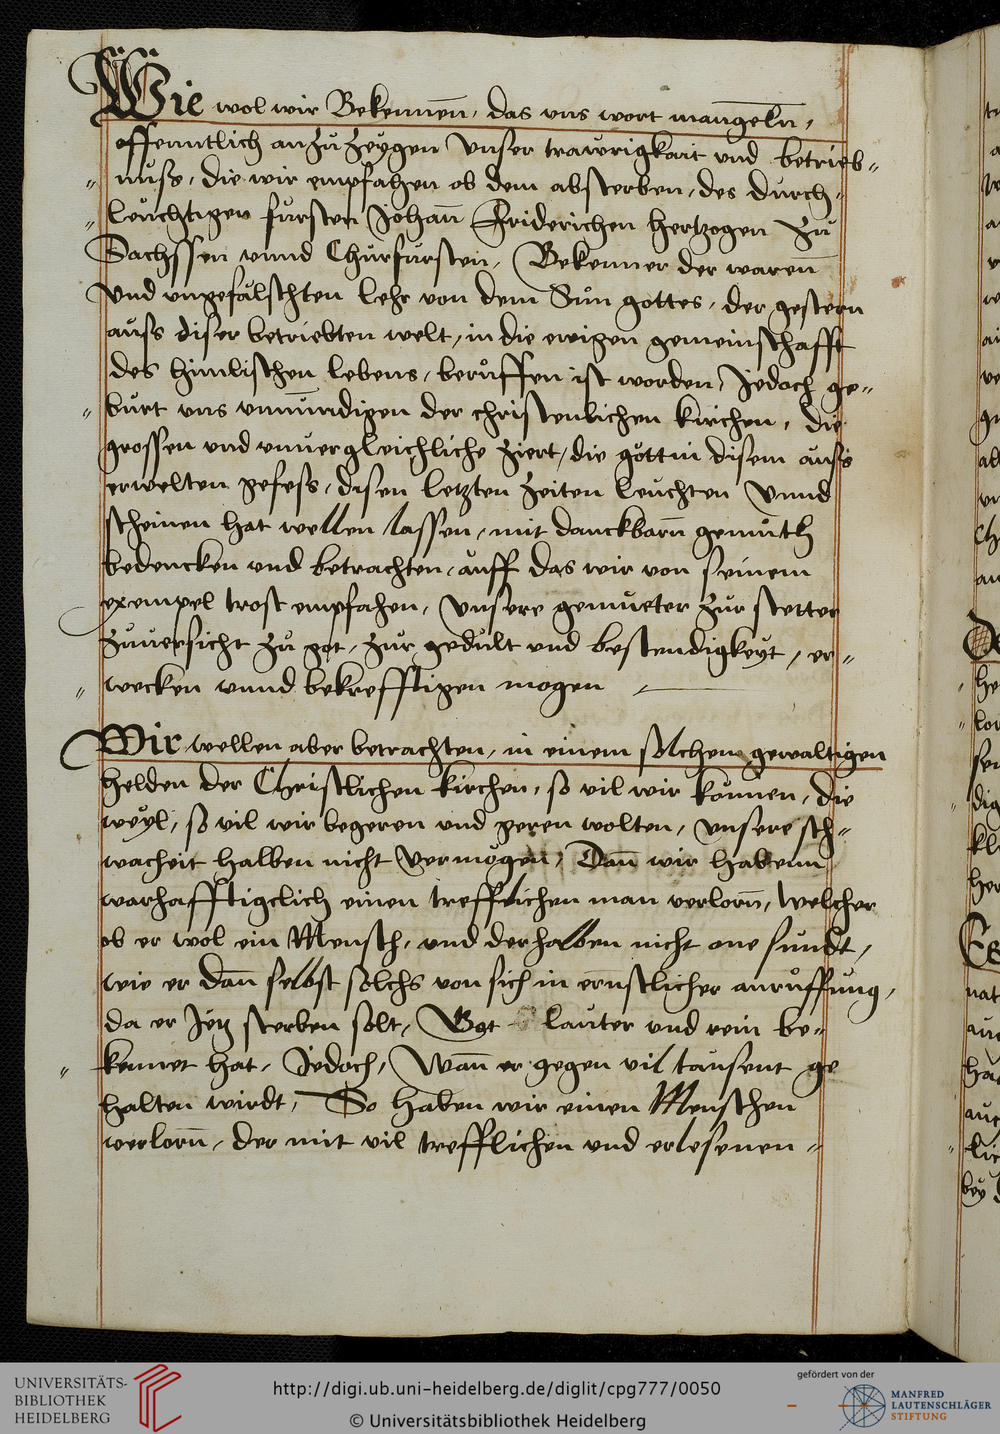 Wie wol wir Bekennen̄, das vns wort mangeln̄,
offenntlich anzuzeygen Vnser trawrigkait vnd betrieb„
„ nuss, die wir empfahen ob dem absterben, des durch„
„ leuchtigen fursten Johan̄ Friderichen hertzogen Zu
Sachssen vnnd Churfursten, Bekenner der waren̄
Vnd vngefalschten lehr von dem Sun gottes, der gestern
auss diser betriebten welt, in die ewigen gemeinschafft
des himlischen lebens, beruffen ist worden, Jedoch ge„
„ burt vns vnwirdigen der christenlichen kirchen, die
grossen vnd vnuergleichliche Ziert, die gott in disem auss
erwelten gefess, disen letzten Zeiten leuchten Vnnd
scheinen hat wellen lassen, mit danckbarn̄ gemuth
bedencken vnd betrachten, auff das wir von seinem
exempel trost empfahen, Vnsere gemueter Zur stetter
Zuuersicht Zu got, Zur gedult vnd bestendigkeyt, er„
„ wecken vnnd bekrefftigen mogen
Wir wellen aber betrachten, in einem solchem gewaltigen
helden der Christlichen kirchen, so vil wir konnen, die
weyl, so vil wir begeren vnd geren wolten, Vnsere sch„
wacheit halben nicht Vermogen, Dan̄ wir habenn
warhafftigclich einen trefflichen man verlorn̄, welcher
ob er wol ein Mensch, vnd derhalben nicht one sundt,
wie er dan̄ selbst solchs von sich in ernstlicher anruffung,
da er Jetz sterben solt, Got lauter vnd rein be„
„ kennet hat, Jedoch, Wan̄ er gegen vil tausent ge
halten wirdt, So haben wir einen Menschen
verlorn̄, der mit vil trefflichen vnd erlesenen„
UNIVERSITÄTS-
BIBLIOTHEK
HEIDELBERG
http://digi.ub.uni-heidelberg.de/diglit/cpg777/0050
© Universitätsbibliothek Heidelberg
gefördert von der
MANFRED
LAUTENSCHLÄGER
STIFTUNG